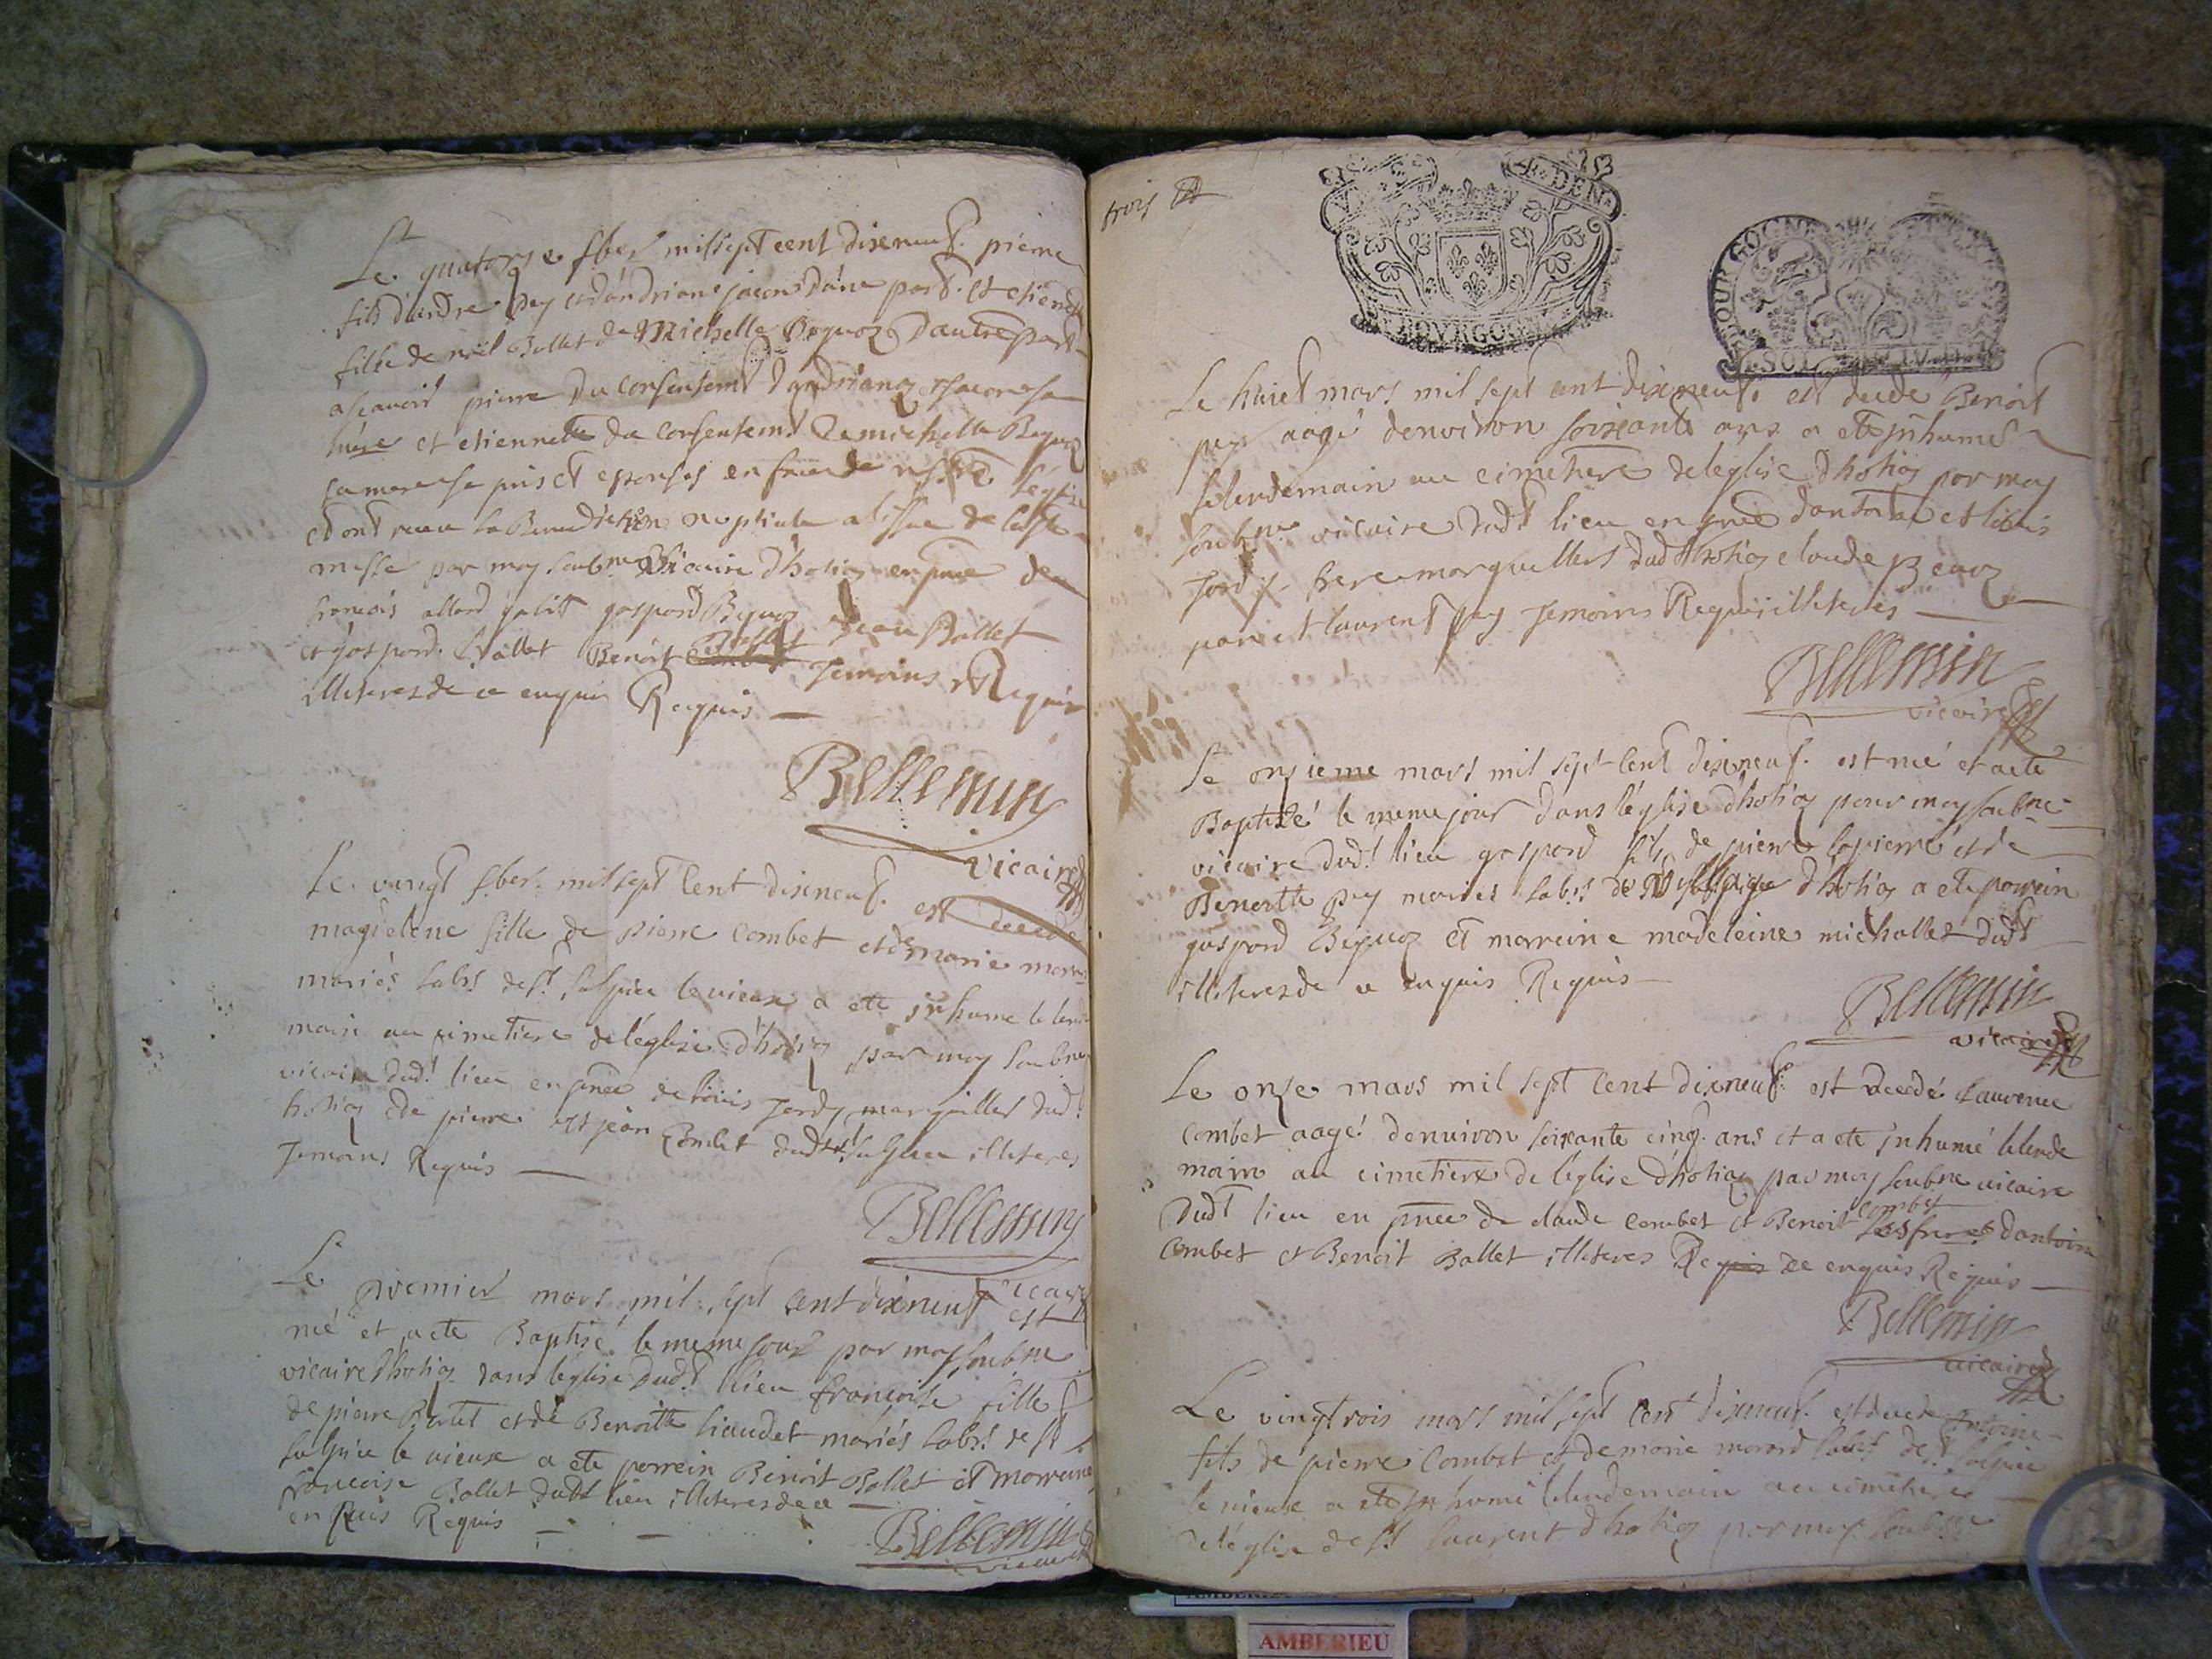 Le quatorze fber mil sept cent dixneuf. pierre
fils d'andre pey et d'andriane d'une part. et etiennette
fille de noel Ballet de Michelle Beguoz d'autre part
ascavoir pierre du consentemt d'andriane sa
mere et etiennette du consentemt de michelle Beguoz
sa mere se pris et epousés en face de nostre Ste eglise
et ont receu la Benediction nuptiale a l'issue de la Ste
messe par moy soubne vicaire d'hotiaz en pnce de
francois allard gaspard Beguoz Jean Ballet
et gaspard Ballet Benoit Ballet temoins Requis
illiteres de ce enquis Requis
Bellemin
vicaire
Le vingt fber mil sept Cent dixneuf. est decede
magdelene fille de pierre Combet et de marie
mariés labrs de St sulpice le vieux a ete inhume le lende
main au cimetiere de l'eglise d'hotiaz par moy soubne
vicaire dudt lieu en pnce de louis Jordy marguiller dudt
hotiaz de pierre et jean Combet dudt St sulpice illiteres
Temoins Requis
Bellemin
vicaire
Le premier mars mil sept cent dixneuf est
né et a ete Baptisé le meme jour par moy soubne
vicaire d'hotiaz dans l'eglise dudt lieu francoise fille
de pierre et de Benoitte liaudet mariés labrs de St
sulpice le vieux a ete parrein Benoit Ballet et marreine
francoise Ballet dudt lieu illiteres de ce
enquis Requis
Bellemin
vicaire
trois
DEN.
BOVRGOGNE
BOURGOGNE
SOL
Le huict mars mil sept cent dixneuf. est decedé Benoit
pey aagé denviron soixante ans a ete inhumé
le lendemain au cimetiere de l'eglise d'hotiaz par moy
soubne vicaire dudt lieu en pnce d'antoine et louis
Jordy frere marguillers dudt hotiaz claude Beaoz
et laurent pey Temoins Requis illiteres
Bellemin
vicaire
Le onzieme mars mil sept Cent dixneuf. est né et a ete
Baptizé le meme jour dans l'église d'hotiaz par moy soubne
vicaire dudt lieu gaspard fils de pierre lapierre et de
Benoitte pey mariés labrs d'hotiaz a ete parrein
gaspard Beguoz et marreine madeleine michallet dudt
illiteres de ce enquis Requis
Bellemin
vicaire
Le onze mars mil sept Cent dixneuf. est decedé Laurence
Combet aagé denuiron soixante cinq ans et a ete inhumé le lende
main au cimetiere de l'église d'hotiaz par moy soubne vicaire
dudt lieu en pnce de claude combet et Benoit combet les freres d'antoine
Combet et Benoit Ballet illiteres Requis de enquis Requis
Bellemin
vicaire
Le vingt trois mars mil sept Cent dixneuf. est decede Antoine
fils de pierre Combet et de marie morard labrs de St sulpice
le vieux a ete inhumé le lendemain au cimetiere
de l'église de St laurent d'hotiaz par moy soubne
AMBERIEU